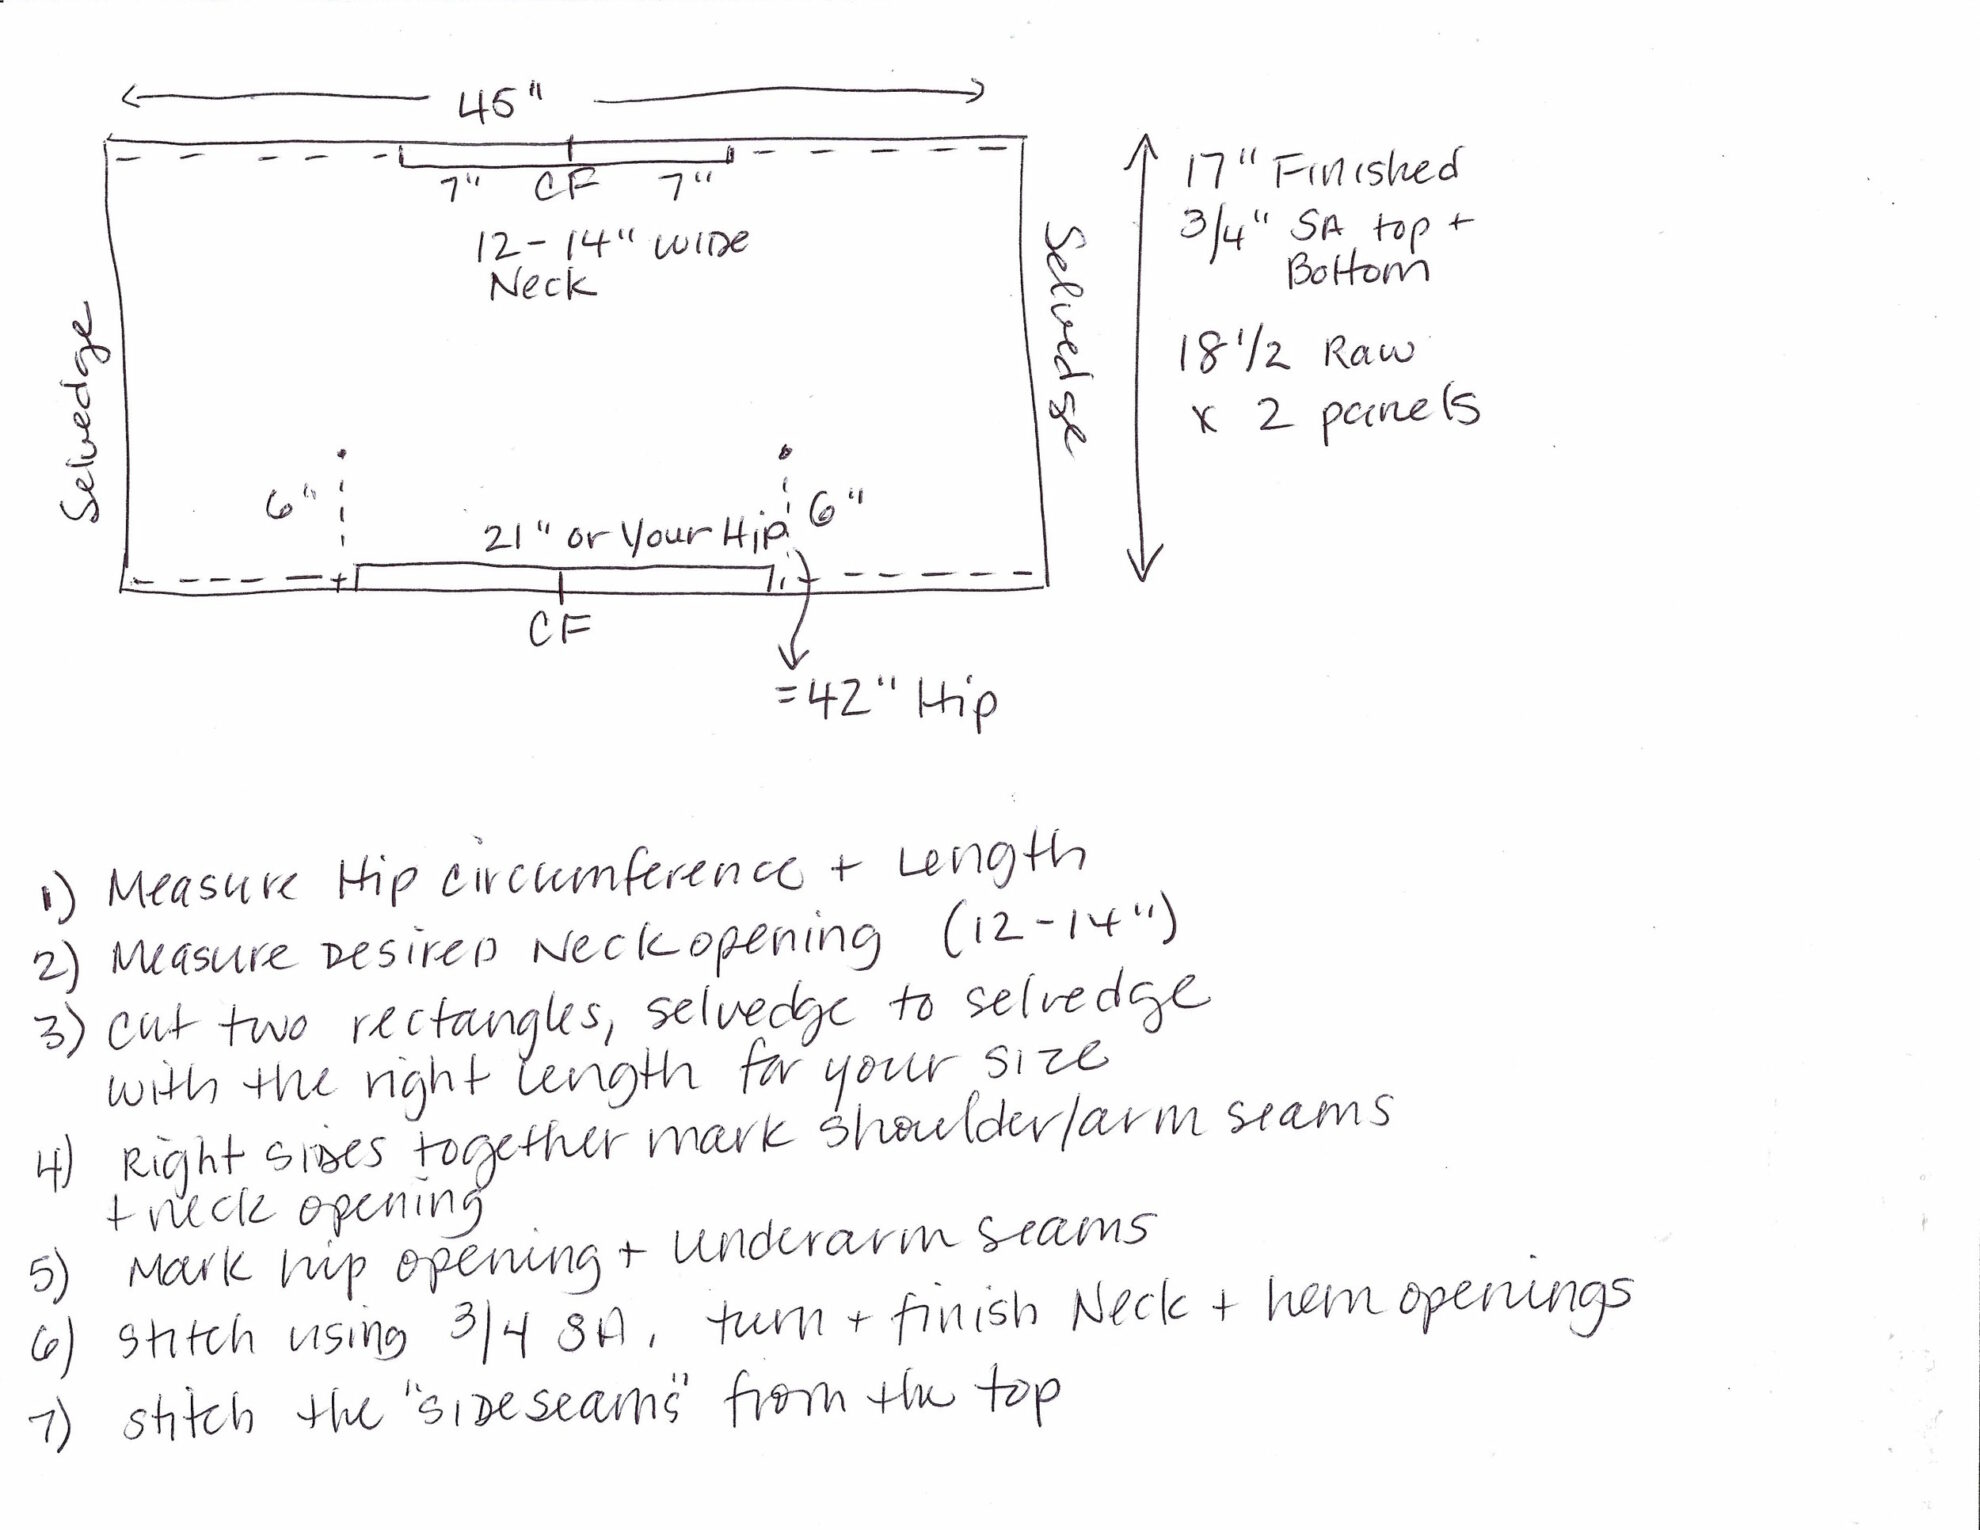 45"
7" CF 7"
12-14" WIDE
Neck
Selvedge
Selvedge
17" Finished
3/4" SA top +
Bottom
18 1/2 Raw
x 2 panels
6"
21" or Your Hip
6"
CF
=42" Hip
1) Measure Hip circumference + Length
2) Measure Desired Neck opening (12-14")
3) Cut two rectangles, selvedge to selvedge
with the right length for your size
4) Right sides together mark shoulder/arm seams
+ neck opening
5) Mark hip opening + underarm seams
6) Stitch using 3/4 SA, turn + finish Neck + hem openings
7) Stitch the "side seams" from the top